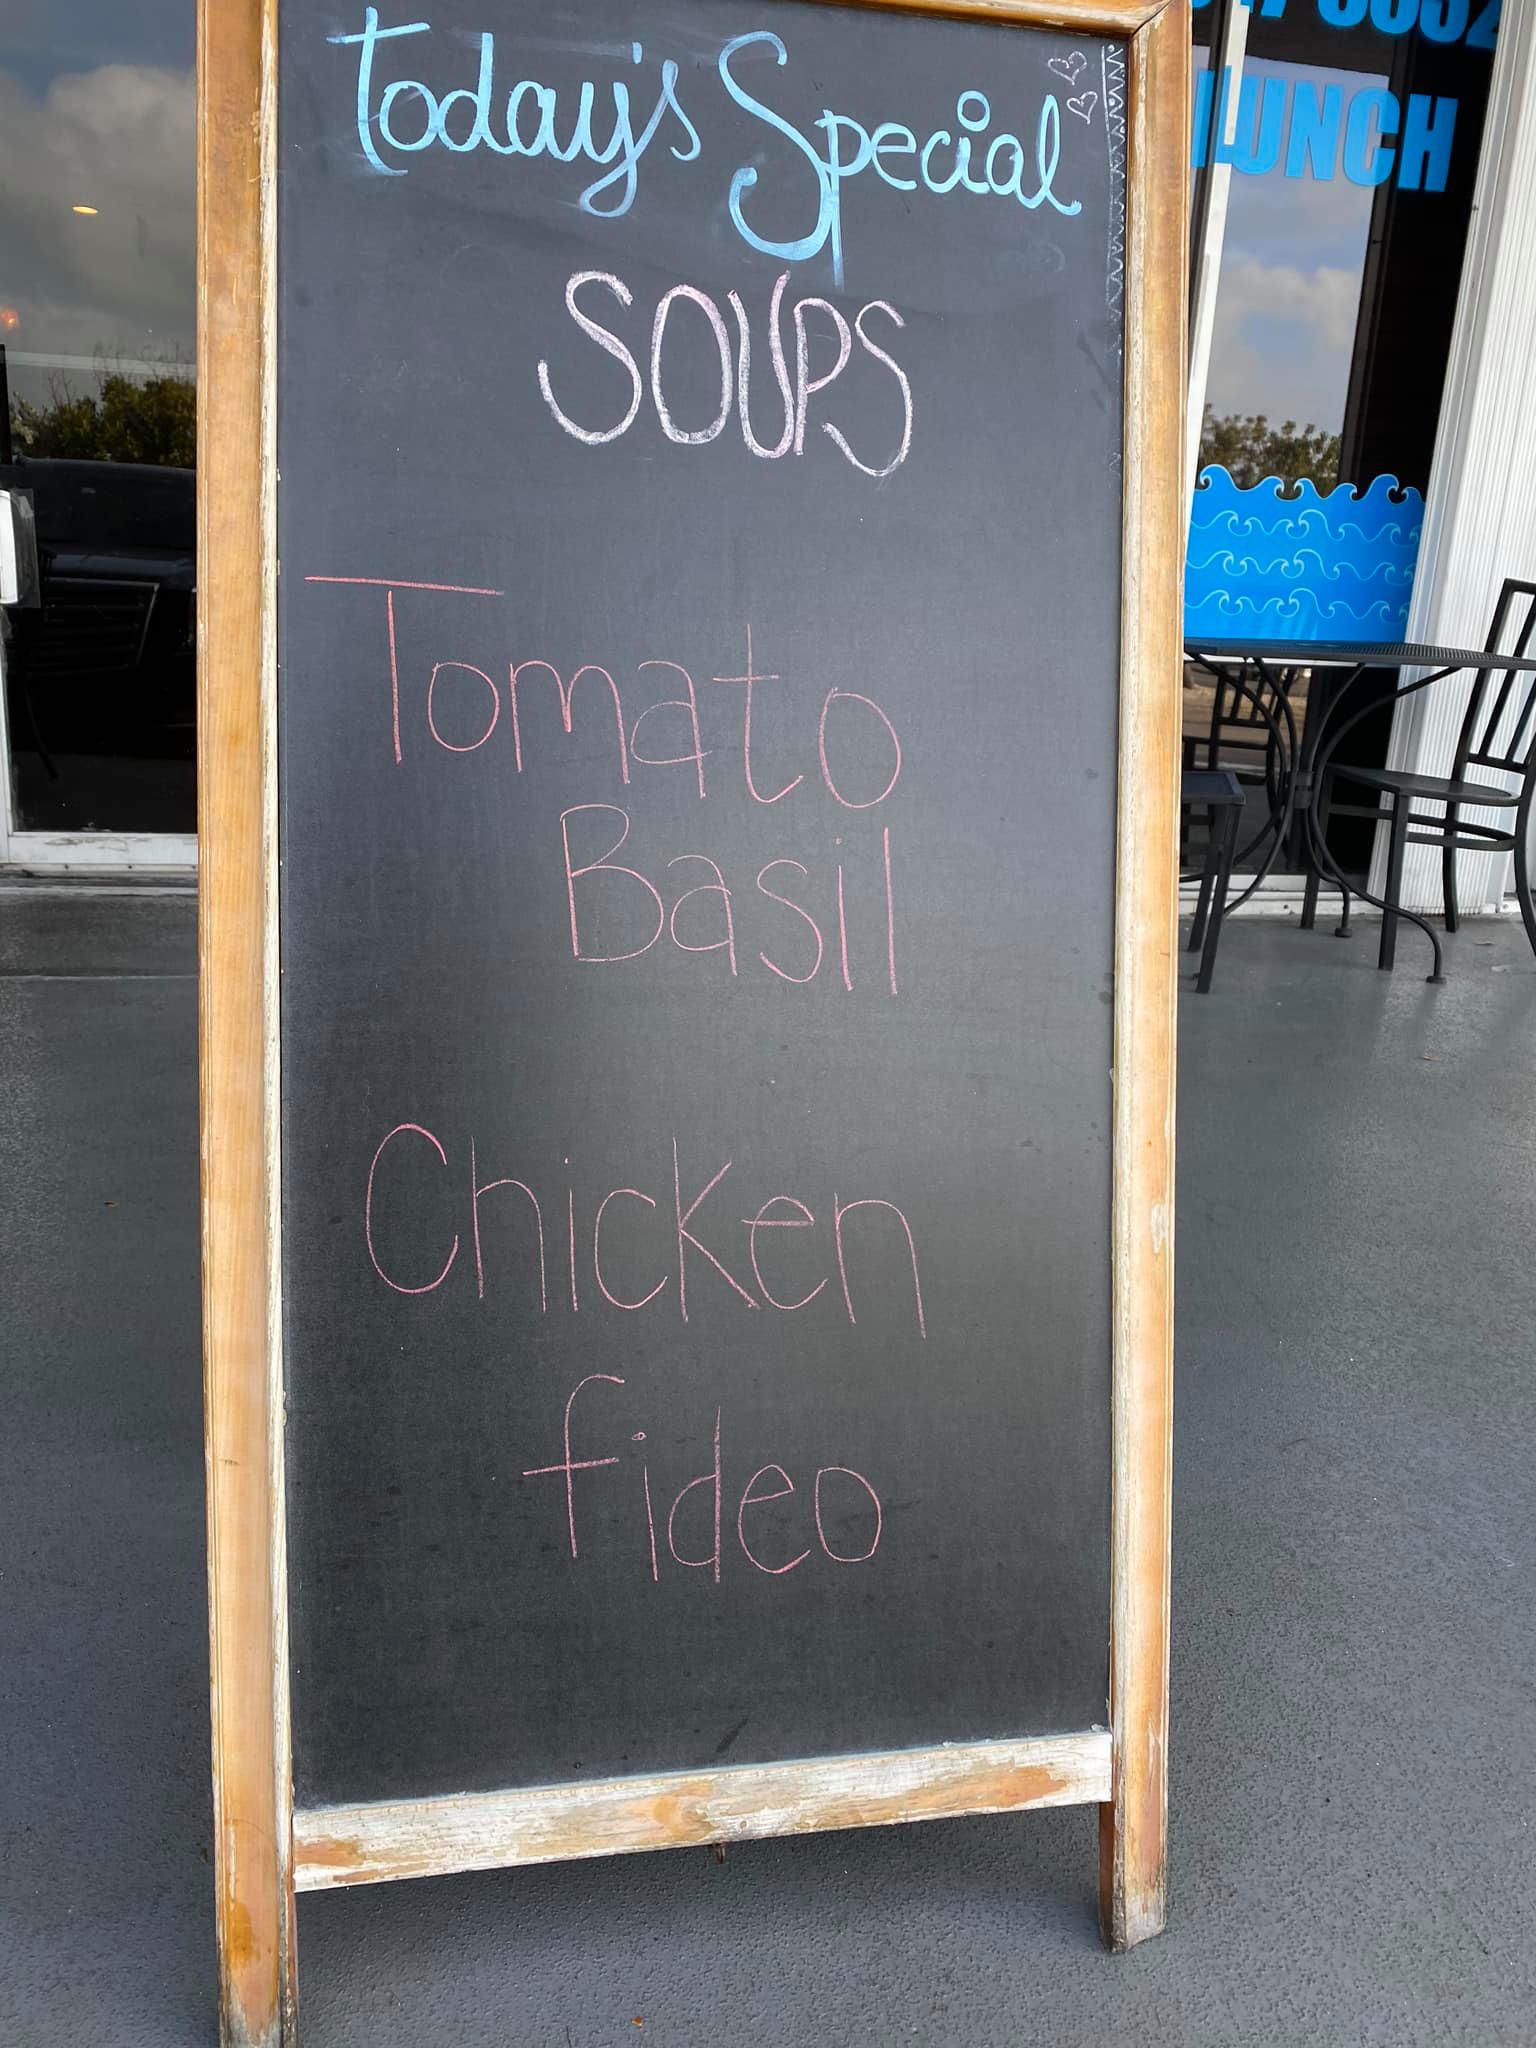 today's Special
SOUPS
Tomato
Basil
Chicken
fideo
LUNCH